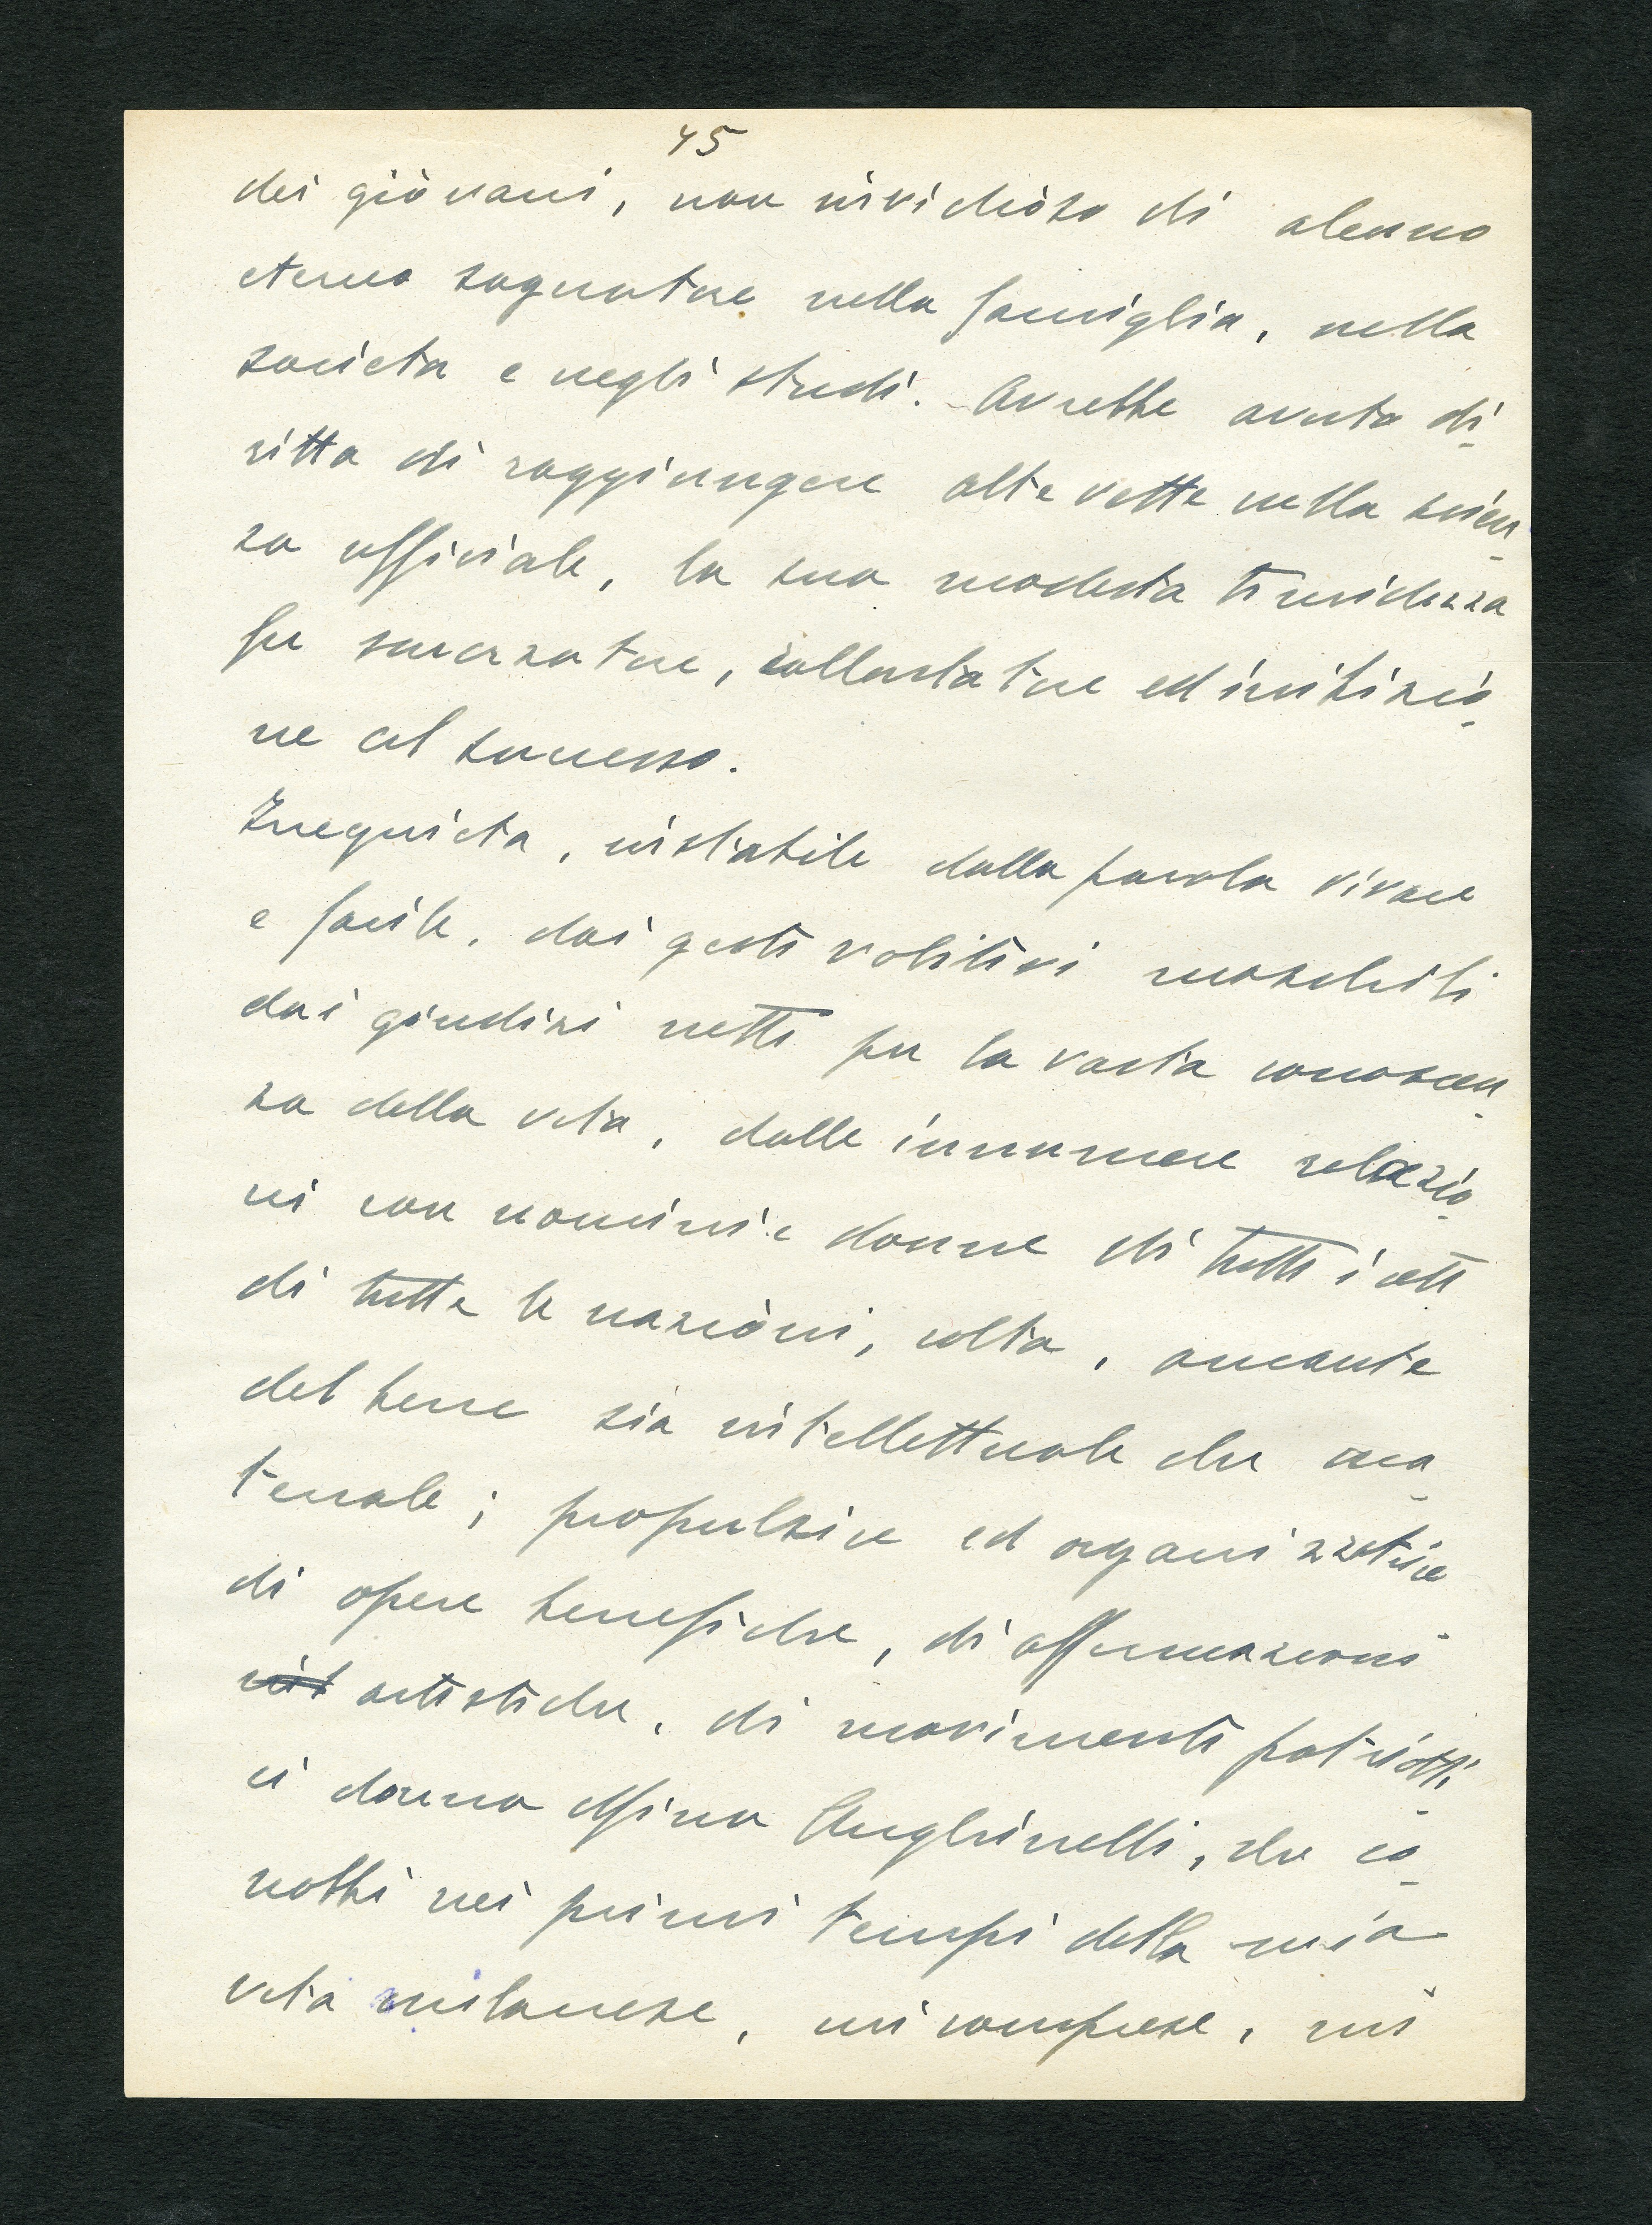 45
dei giovani, non invidioso di alcuno
eterno sognatore nella famiglia, nella
societa e negli studi. Avrebbe avuto di-
ritto di raggiungere alte vette nella scien-
za ufficiale, la sua modesta timidezza
fu ed inibizio-
ne al successo.
Inequieta, instabile dalla parola vivace
e facile, dai gesti volitivi maschili
dai giudizi netti per la vasta conoscen-
za della vita, dalle innumere relazio-
ni con uomini e donne di tutti i ceti
di tutte le nazioni, colta, amante
del bene sia intellettuale che ma-
teriale; propulsice ed organizzatrice
di opere benefiche, di affermazioni
artistiche, di movimenti patriotti-
ci donna Anghinelli, che co-
nobbi nei primi tempi della mia
vita milanese, mi comprese, mi